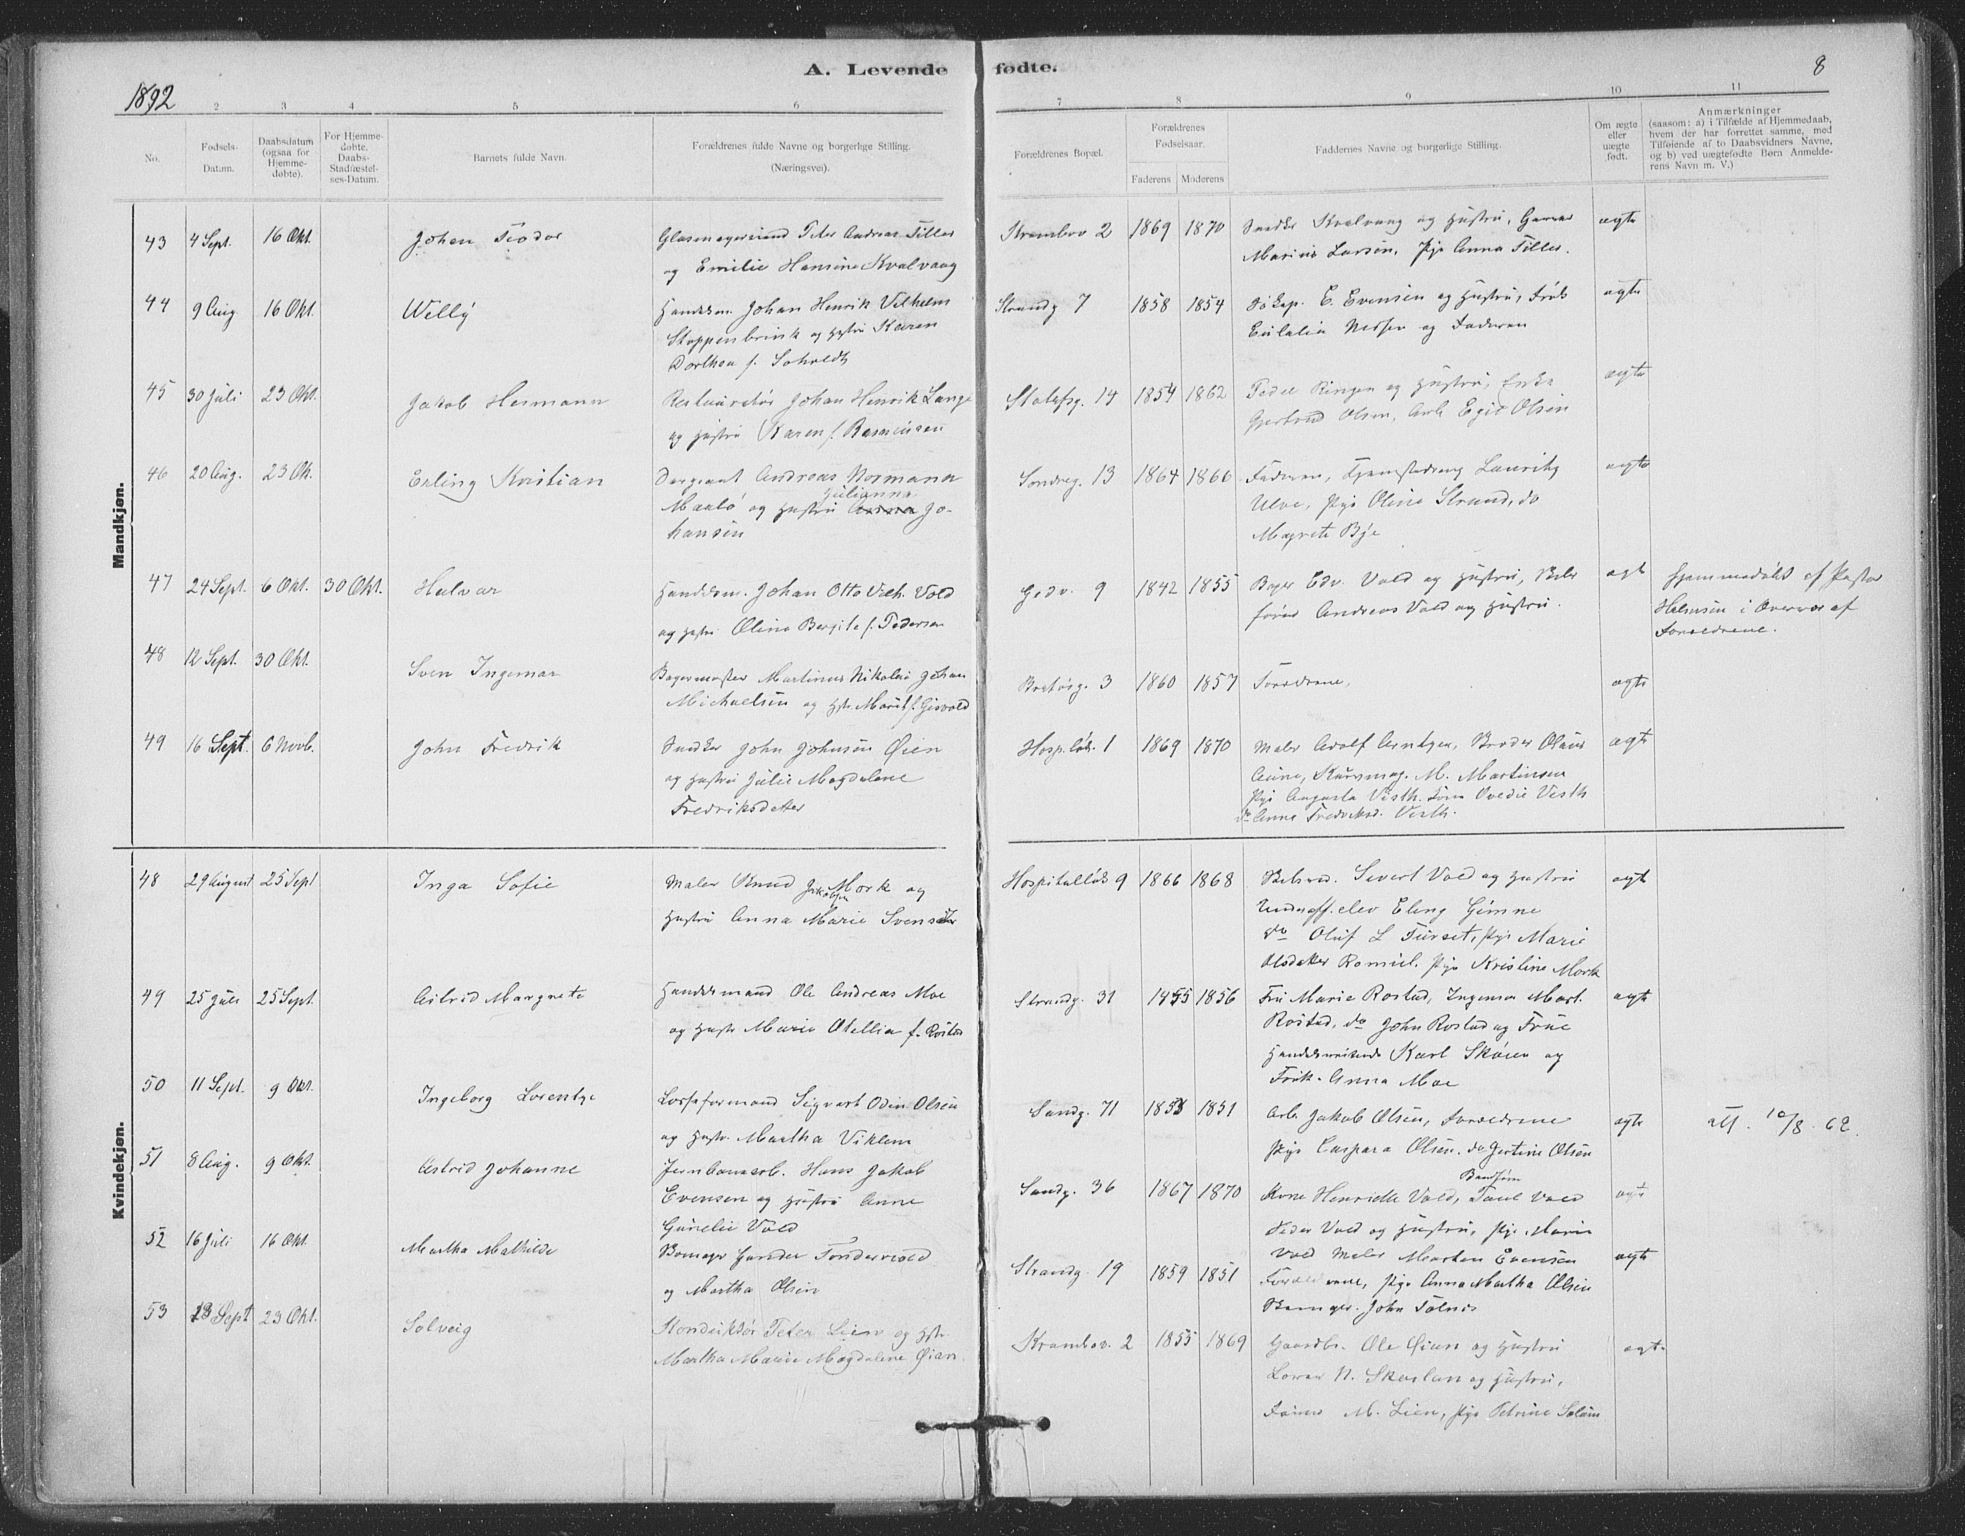 A. Levende fødte.
8
1892
2 3 4 5 6 7 8 9 10 11
No.
Fødsels-Datum.
Daabsdatum (ogsaa for Hjemmedøbte).
For Hjemmedøbte. Daabs-Stadfæstelses-Datum.
Barnets fulde Navn.
Forældrenes fulde Navne og borgerlige Stilling. (Næringsvei).
Forældrenes Bopæl.
Forældrenes Fødselsaar.
Faderens Moderens
Faddernes Navne og borgerlige Stilling.
Om ægte eller uægte født.
Anmærkninger
(saasom: a) i Tilfælde af Hjemmedaab,
hvem der har forrettet samme, med
Tilføiende af to Daabsvidners Navne,
og b) ved uægtefødte Børn Anmelderens Navn m. V.)
Mandkjøn.
43 4 Sept. 16 Okt. Johan Teodor
Peter Andreas Tiller
og Emilie Hansine Kvalvaag
2 1869 1870
Kvalvaag og Hustru,
Marius Larsen, Pige Anna Tiller.
ægte
44 9 Aug. 16 Okt. Willy
Handelsm. Johan Henrik Vilhelm
Stoppenbrink og Hustru Karen
Dorthea f. Soholdt
Strandg 7 1858 1854
E. Evensen og Hustru, Frøk
Eulalia Nissen og Faderen
ægte
45 30 Juli 23 Okt. Jakob Hermann
Restauratør Johan Henrik Lange
og Hustru Karen f. Rasmussen
Olafsg. 14 1854 1862
Ringen og Hustru,
Gjertrud Olsen, Arb. Olsen
ægte
46 20 Aug. 23 Ok. Erling Kristian
Sergeant Andreas Normann
Julianna
og Hustru Jo-
hansen
Sondreg. 13 1864 1866
Faderen, Lauritz
Ulve, Pige Oline Strand, do
Magrete Bye
ægte
47 24 Sept. 6 Okt. 30 Okt. Halvar
Handelsm. Johan Otto Vilh. Vold
og Hustru Oline Bergite f. Pedersen
9 1842 1855
Bager Edv. Vold og Hustru,
fører Andreas Vold og Hustru.
ægt
Hjemmedøbt af Pastor
i Overvær af
Forældrene.
48 12 Sept. 30 Okt. Sven Ingemar
Bagermester Martinus Nikolai Johan
Michaelsen og Hst. Marit f. Gisvold
3 1860 1857
Forældrene,
ægte
49 16 Sept. 6 Novb. John Fredrik
Snedker John Johnsen Øien
og Hustru Julie Magdalene
Fredriksdatter
Hosp.løk. 1 1869 1870
Maler Adolf Arntzen, Olaus
Aune, Kurvmag. M. Martinsen
Pige Augusta Visth. Ovedie Vesth
do Anna Fredriksd. Vesth.
ægte
Kvindekjøn.
48 29 August 25 Sept Inga Sofie
Maler Knud Jakobsen Mork og
Hustru Anna Marie
Hospitalløk 9 1866 1868
Sivert Vold og Hustru
Underoff. elev Eling Gimne
do Oluf L Furset, Pige Marie
Pige Kristine Mork
ægt
49 25 Juli 25 Sept. Astrid Margrete
Handelsmand Ole Andreas Moe
og Hustr Marie Otellia f. Rostad
Strandg. 31 1856
Fru Marie Rostad, Ingeniør Mart.
Rostad, do John Rostad og Frue
Handelsreisende Karl Skøien og
Frøk. Anna Moe
ægte
50 11 Sept. 9 Okt. Ingeborg Lorentze
Losseformand Sigvart Odin Olsen
og Hustr. Martha Viklem
Sandg. 71 1851
Arb. Jakob Olsen, Forældrene
Pige Caspara Olsen. do Gjertine Olsen
ægte
att. 10/8. 62.
51 8 Aug. 9 Okt. Astrid Johanne
Jernbanearb. Hans Jakob
Evensen og Hustru Anne
Gunelie Vold
Sandg. 36 1867 1870
Kone Henriette Vold, Paul Vold
Peder Vold og Hustru, Pige Marie
Vold Maler Morten Evensen
ægt
52 16 Juli 16 Okt. Martha Mathilde
Gunder Tondervold
og Martha Olsen
Strandg. 19 1859 1851
Forældrene, Pige Anna Martha Olsen
John Tolnes
ægte
53 Sept 23 Okt. Solveig
Konduktør Peter Lien og Hstr.
Martha Marie Magdalene Øian.
Krambov. 2 1855 1869
Gaardbr. Ole Øian og Hustru
N. Skarlan og Hustru,
M. Lien, Pige Petrine Solem
ægt.